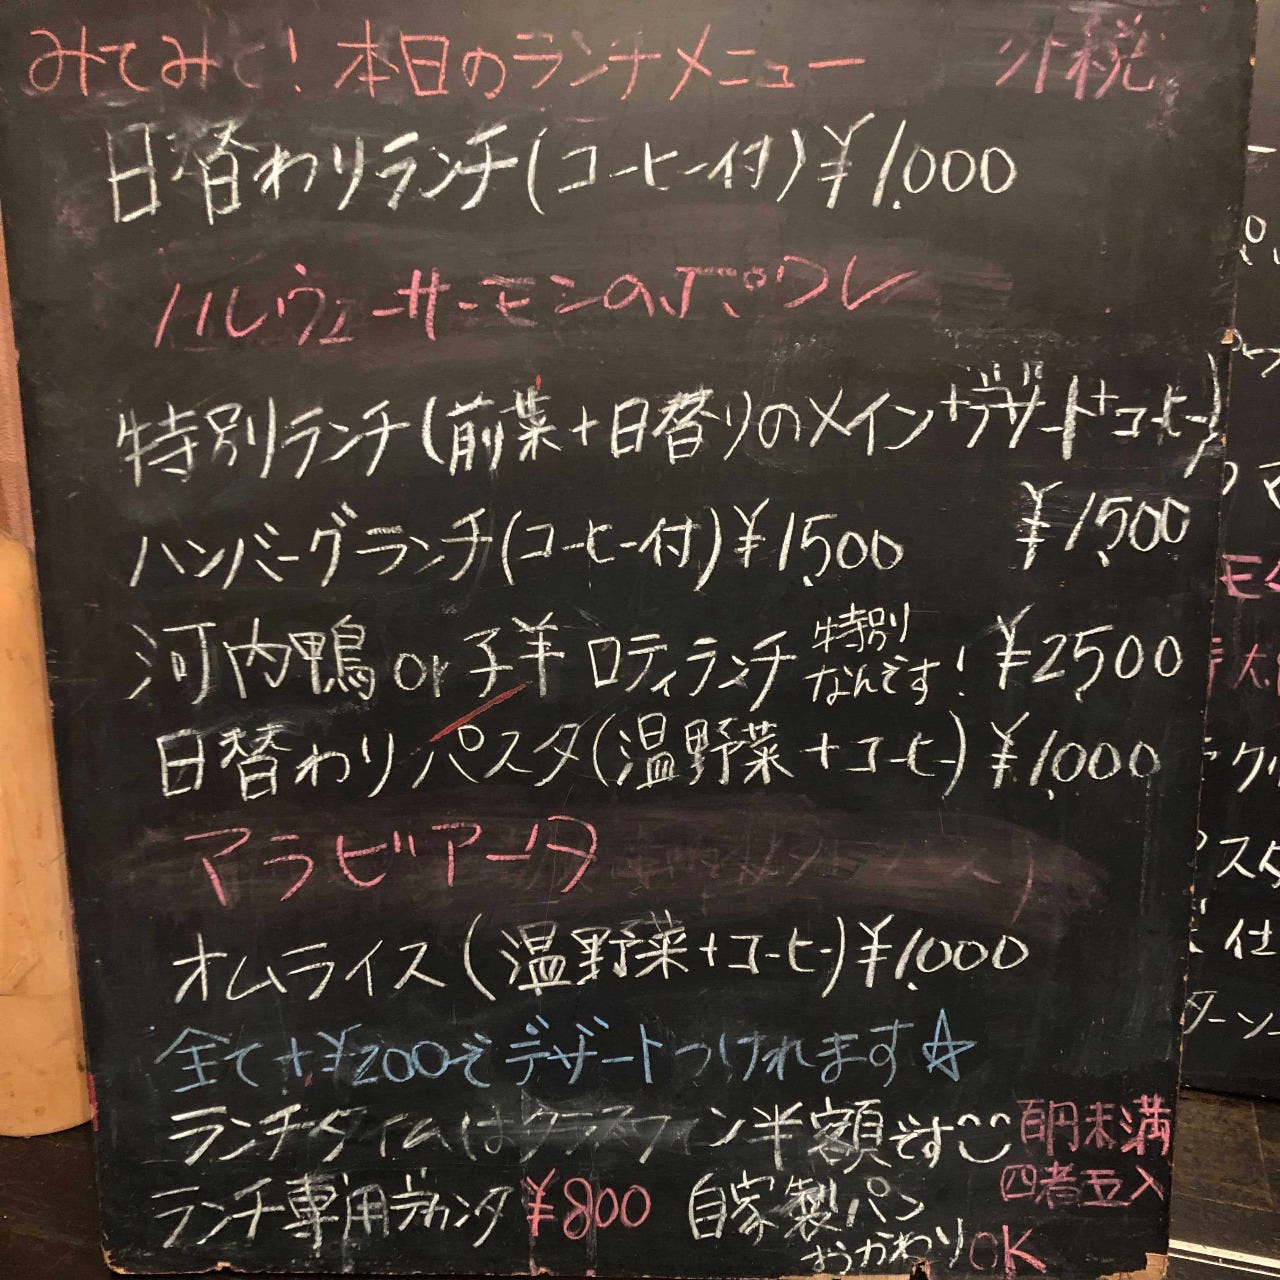 みてみて！本日のランチメニュー 外税
日替わりランチ(コーヒー付)¥1,000
ノルウェーサーモンのポワレ
特別ランチ(前菜+日替りのメイン+デザート+コーヒー)
¥1,500
ハンバーグランチ(コーヒー付)¥1,500
河内鴨or子羊 ロティランチ 特別なんです！¥2,500
日替わりパスタ(温野菜+コーヒー)¥1,000
アラビアータ
オムライス(温野菜+コーヒー)¥1,000
全て+¥200でデザートつけれます☆
ランチタイムはグラスワイン半額です
百円未満
四者五入
ランチ専用デカンタ¥800 自家製パン
おかわりOK